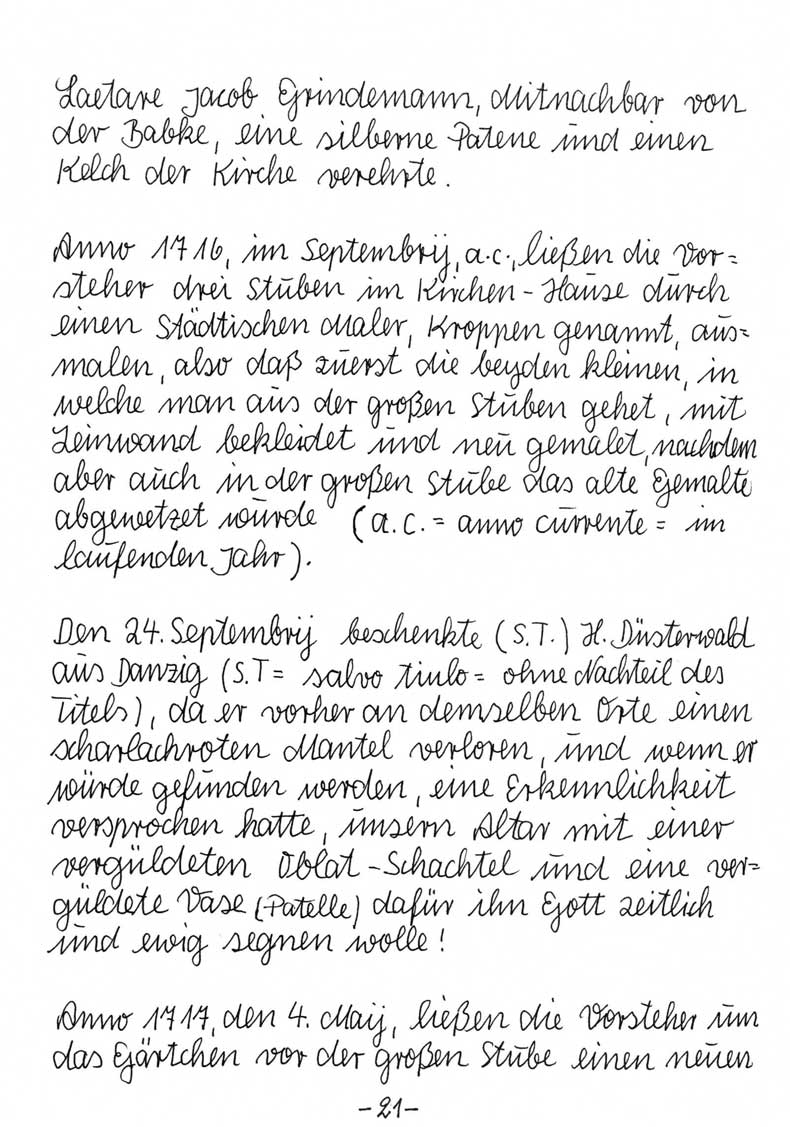 Laetare Jacob Grindemann, Mitnachbar von
der Babke, eine silberne Patene und einen
Kelch der Kirche verehrte.
Anno 1716, im Septembrij, a.c., ließen die Vor=
steher drei Stuben im Kirchen-Hause durch
einen Städtischen Maler, Kroppen genannt, aus=
malen, also daß zuerst die beyden kleinen, in
welche man aus der großen Stuben gehet, mit
Leinwand bekleidet und neu gemalet, nachdem
aber auch in der großen Stube das alte Gemalte
abgewetzet wurde (a.c. = anno currente = im
laufenden Jahr).
Den 24. Septembrij beschenkte (S.T.) H. Düsterwald
aus Danzig (S.T = salvo tiulo = ohne Nachteil des
Titels), da er vorher an demselben Orte einen
scharlachroten Mantel verloren, und wenn er
würde gefunden werden, eine Erkennlichkeit
versprochen hatte, unsern Altar mit einer
vergüldeten Oblat-Schachtel und eine ver=
güldete Vase (Patelle) dafür ihn Gott zeitlich
und ewig segnen wolle!
Anno 1717, den 4. Maij, ließen die Vorsteher um
das Gärtchen vor der großen Stube einen neuen
-21-